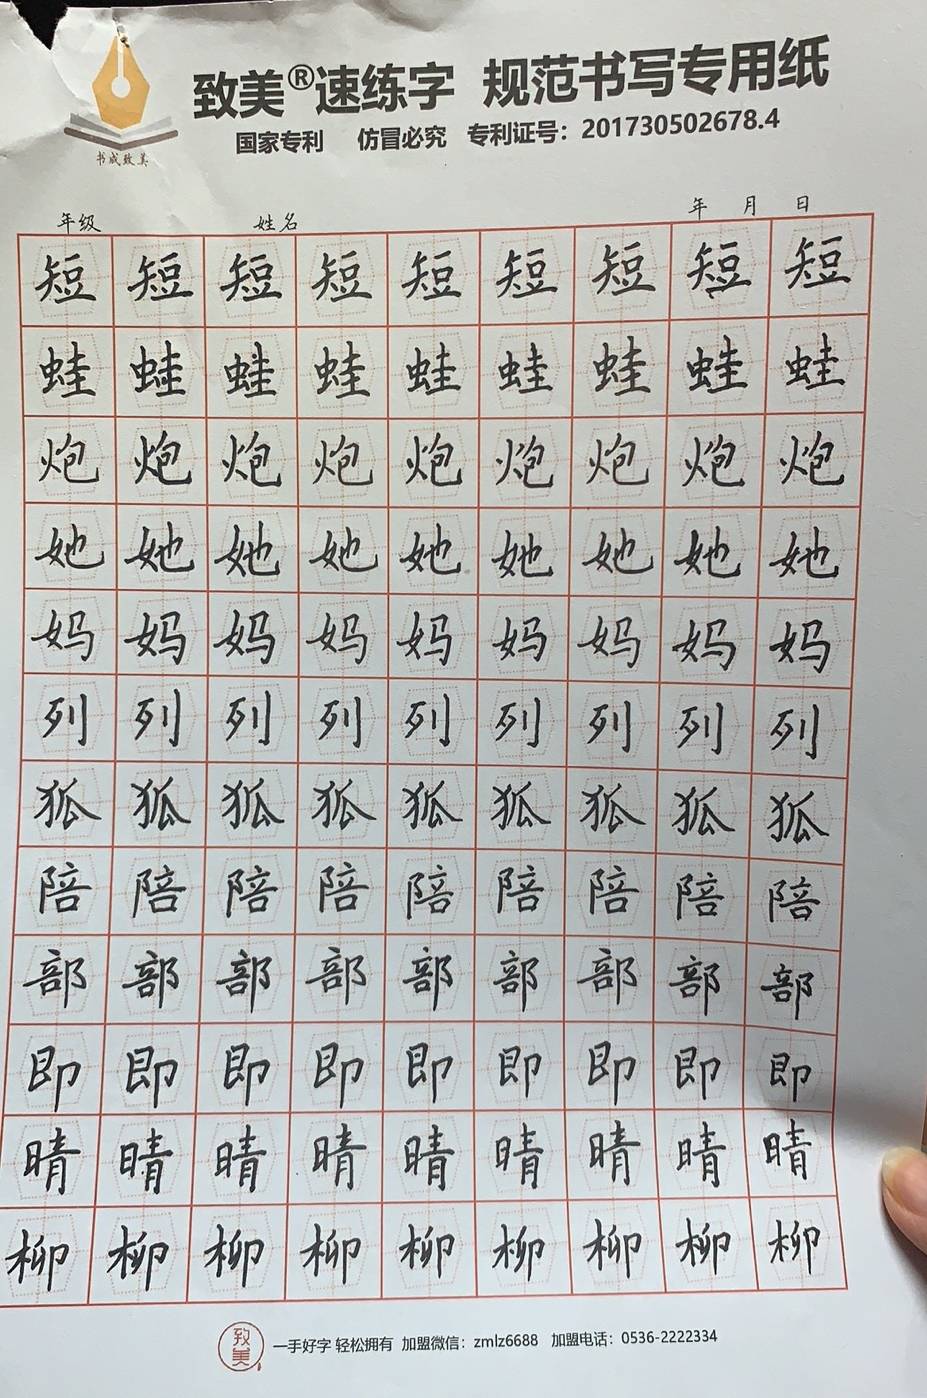 致美®速练字 规范书写专用纸
国家专利 仿冒必究 专利证号：201730502678.4
书成致美
年级 姓名 年 月 日
短 短 短 短 短 短 短 短 短
蛙 蛙 蛙 蛙 蛙 蛙 蛙 蛙 蛙
炮 炮 炮 炮 炮 炮 炮 炮 炮
她 她 她 她 她 她 她 她 她
妈 妈 妈 妈 妈 妈 妈 妈 妈
列 列 列 列 列 列 列 列 列
狐 狐 狐 狐 狐 狐 狐 狐 狐
陪 陪 陪 陪 陪 陪 陪 陪 陪
部 部 部 部 部 部 部 部 部
即 即 即 即 即 即 即 即 即
晴 晴 晴 晴 晴 晴 晴 晴 晴
柳 柳 柳 柳 柳 柳 柳 柳 柳
致美 一手好字 轻松拥有 加盟微信：zmlz6688 加盟电话：0536-2222334